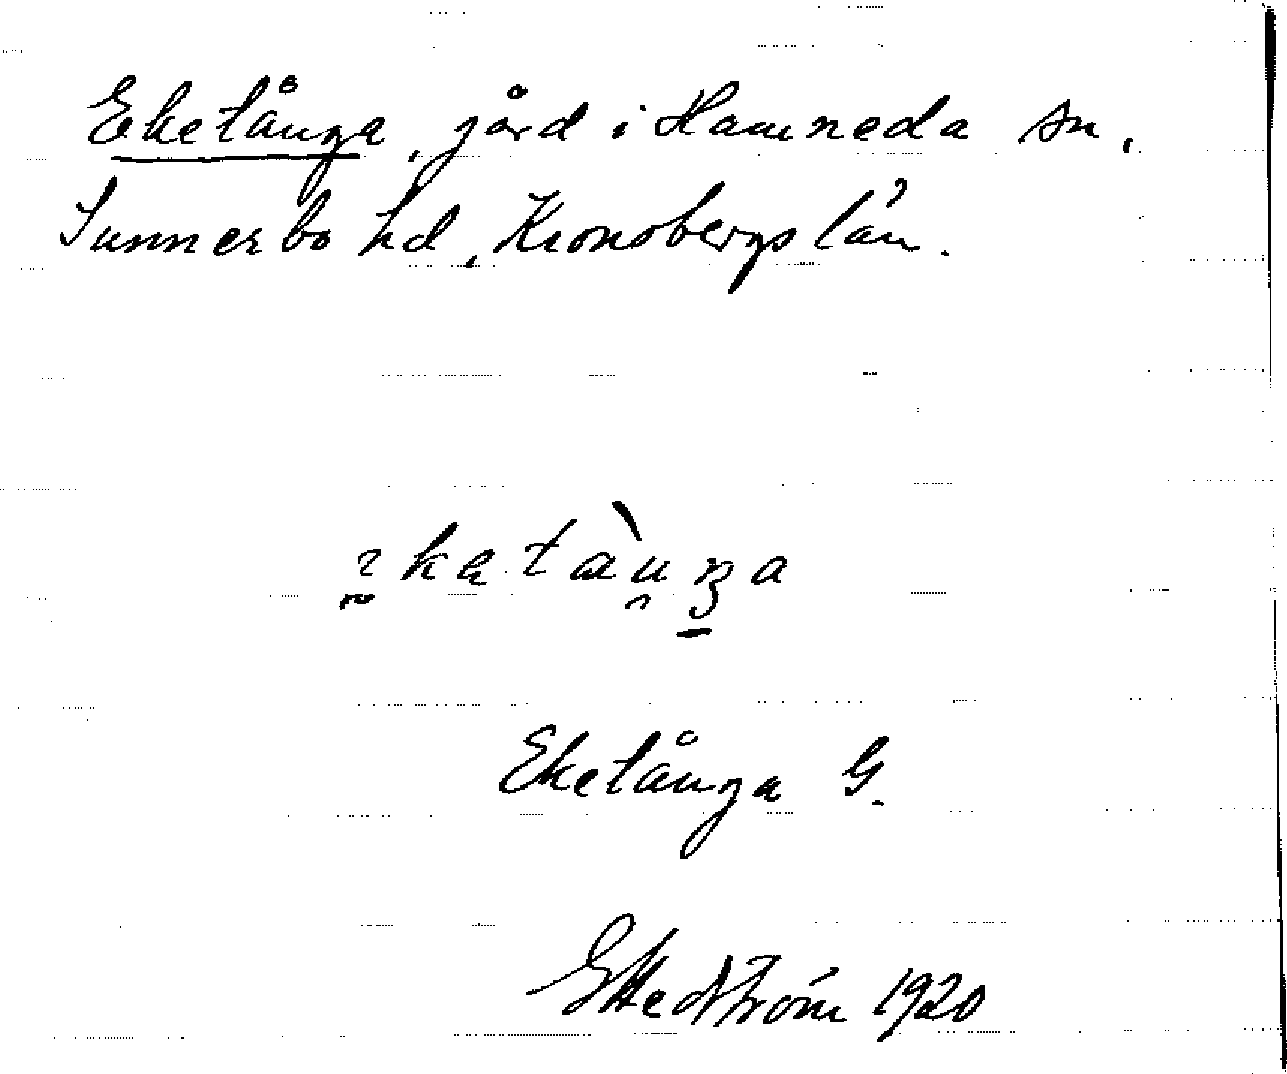 Eketånga, gård i Hamneda sn,
Sunnerbo hd, Kronobergs län.
Eketånga G.
1920